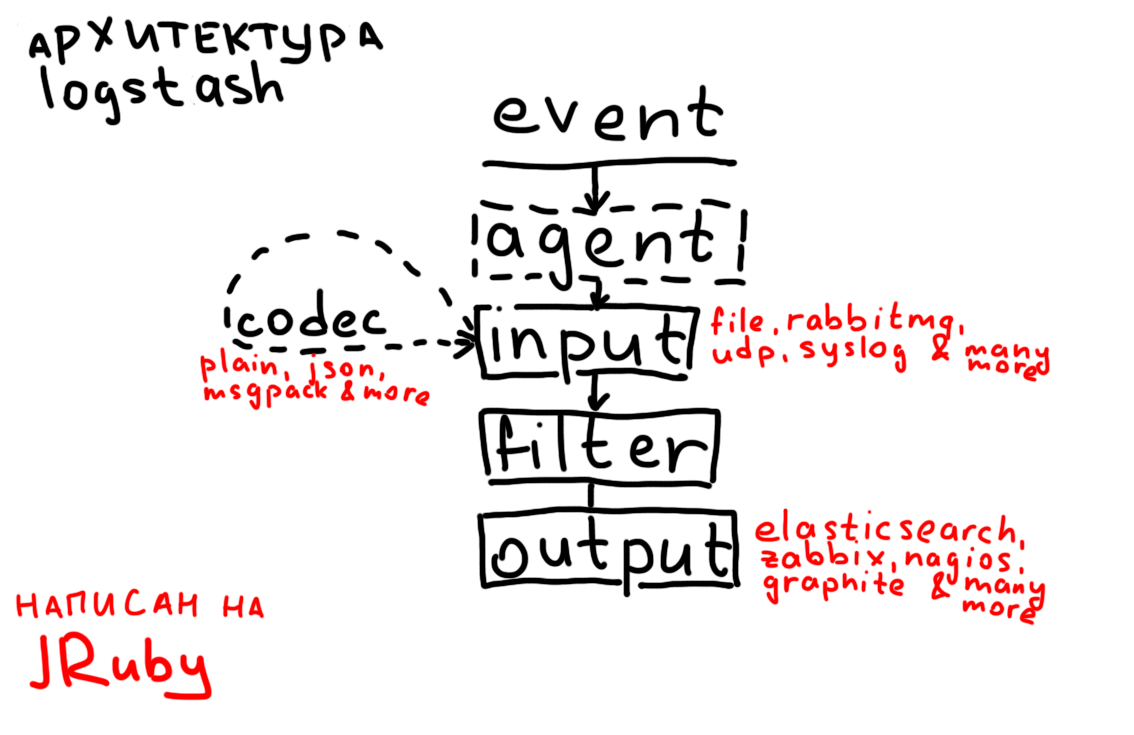 АРХИТЕКТУРА
logstash
event
agent
codec
plain, json,
msgpack & more
input
file, rabbitmg,
udp, syslog & many
more
filter
output
elasticsearch,
zabbix, nagios,
graphite & many
more
НАПИСАН НА
JRuby